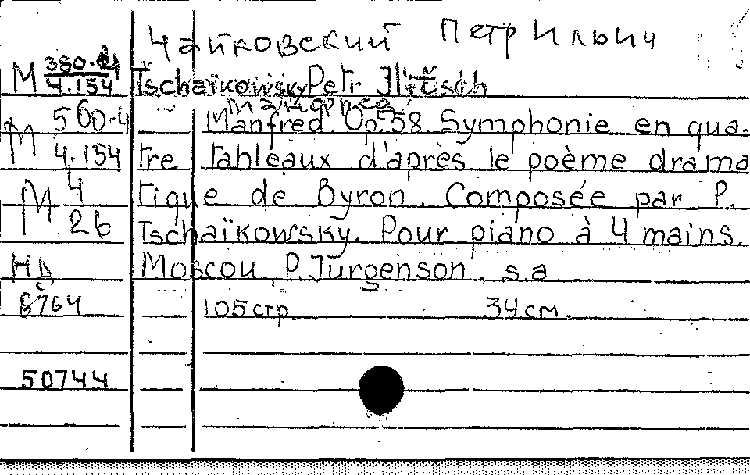 Чайковский Петр Ильич
M 380.4
4.154 Tschaïkowsky Petr Iltisch
Манфред
M 560.4 Manfred Op. 58. Symphonie en qua-
4.154 tre tableaux d'après le poème drama
M 4 tique de Byron. Composée par P.
26 Tschaïkowsky. Pour piano à 4 mains.
НД Moscou, P. Jürgenson, s.a
6764 105 стр. 34 см.
50744